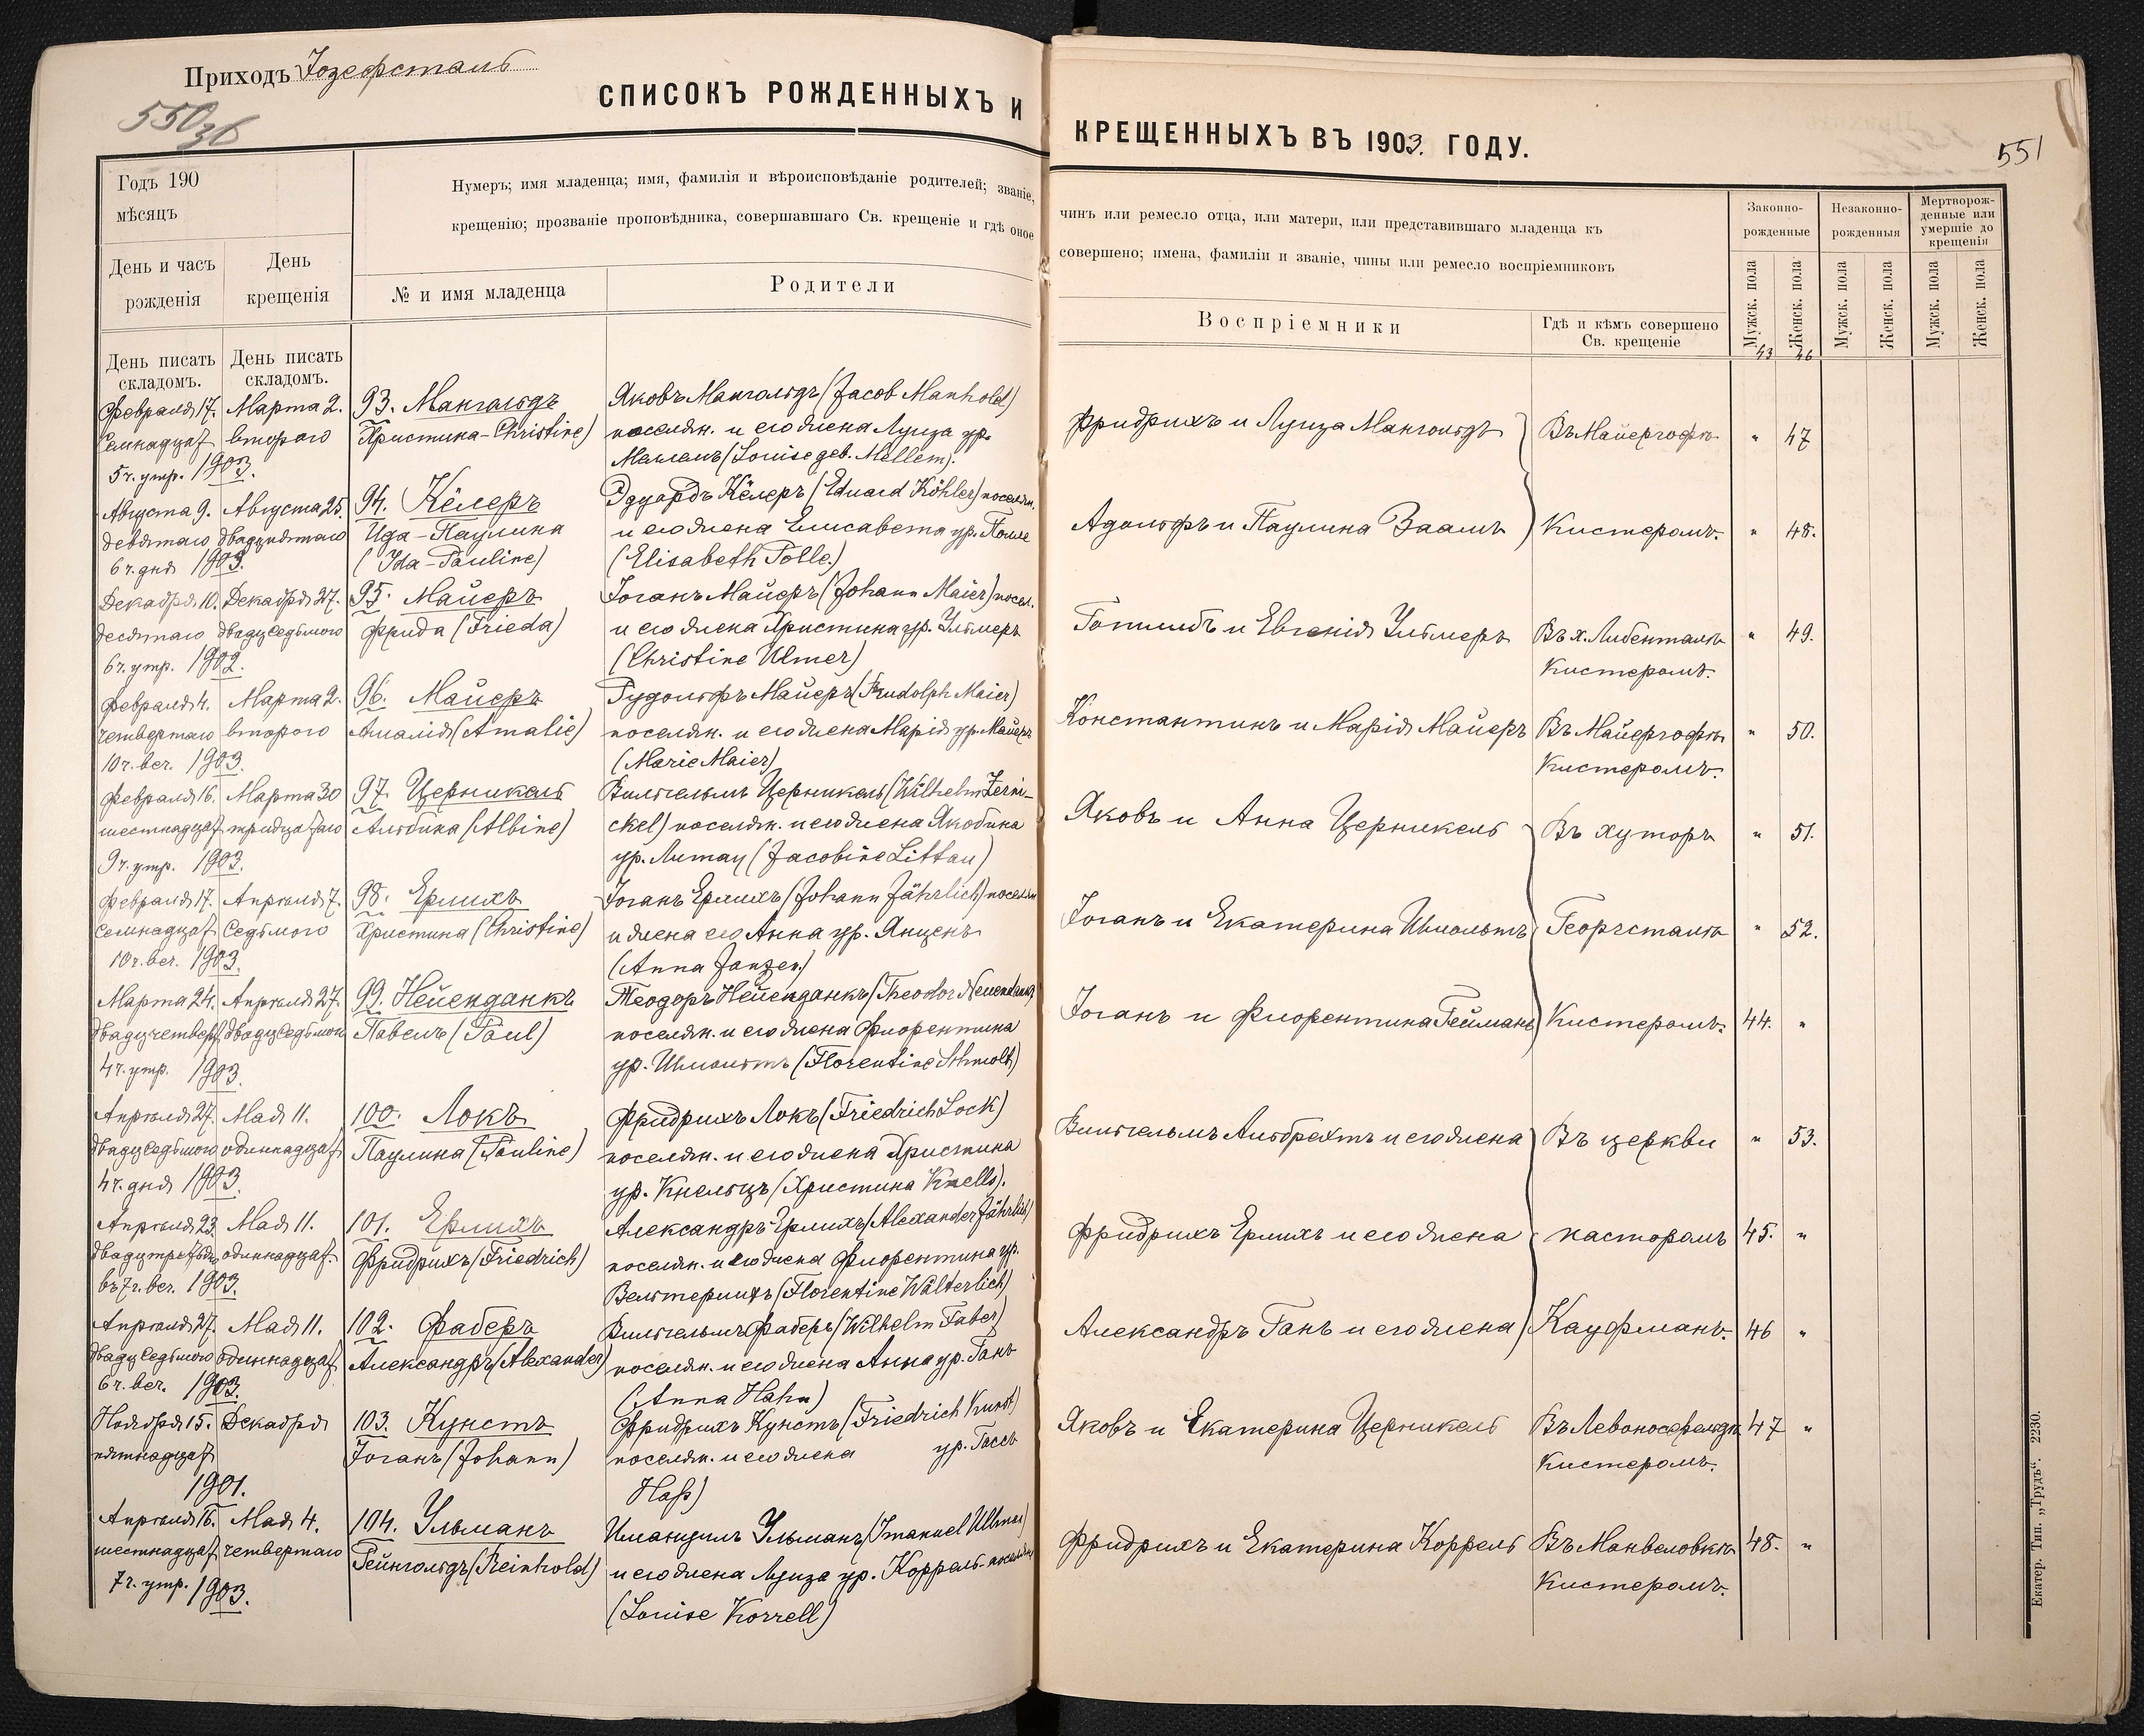 Приходъ Іозефсталь
550
36
СПИСОКЪ РОЖДЕННЫХЪ И
КРЕЩЕННЫХЪ ВЪ 1903. ГОДУ.
551
Годъ 190
мѣсяцъ
День и часъ
рожденія
День
крещенія
Нумеръ; имя младенца; имя, фамилія и вѣроисповѣданіе родителей; званіе,
крещенію; прозваніе проповѣдника, совершавшаго Св. крещеніе и гдѣ оное
№ и имя младенца
Родители
чинъ или ремесло отца, или матери, или представившаго младенца къ
совершено; имена, фамиліи и званіе, чины или ремесло воспріемниковъ
Воспріемники
Гдѣ и кѣмъ совершено
Св. крещеніе
Законно-
рожденные
Незаконно-
рожденныя
Мертворож-
денные или
умершіе до
крещенія
Мужск. пола
Женск. пола
Мужск. пола
Женск. пола
Мужск. пола
Женск. пола
43 46
День писать
складомъ.
День писать
складомъ.
Февраля 17. Марта 2. 93. Мангольдъ Яковъ Мангольдъ (Jacob Manhold)
Семнадцат второго Христина-Christine) поселян. и его жена Луиза ур.
5 ч. утр. 1903. Мелемъ (Louise geb. Mellem).
Фридрихъ и Луиза Мангольдъ Въ Майергофѣ " 47
Августа 9. Августа 25. 94. Кёлеръ Эдуардъ Кёлеръ (Eduard Köhler) поселян.
девятаго двадцпятаго Ида-Паулина и его жена Елисавета ур. Полле
6 ч. дня 1903. (Ida-Pauline) (Elisabeth Polle)
Адольфъ и Паулина Заамъ Кистеромъ. " 48.
Декабря 10. Декабря 27. 95. Майеръ Іоганъ Майеръ (Johann Maier) посел.
десятаго двадцседьмого Фрида (Frieda) и его жена Христина ур. Ульмеръ
6 ч. утр. 1902. (Christine Ulmer)
Готлибъ и Евгенія Ульмеръ Въ х. Либенталѣ " 49.
Кистеромъ.
Февраля 4. Марта 2. 96. Майеръ Рудольфъ Майеръ (Rudolph Maier)
четвертаго второго Амалія (Amalie) поселян. и его жена Марія ур. Майеръ
10 ч. веч. 1903. (Marie Maier)
Константинъ и Марія Майеръ Въ Майергофѣ " 50.
Кистеромъ.
Февраля 16. Марта 30 97. Церникель Вильгельмъ Церникель (Wilhelm Zerni-
шестнадцат тридцатаго Альбина (Albine) ckel) поселян. и его жена Якобина
9 ч. утр. 1903. ур. Литау (Jacobine Littau)
Яковъ и Анна Церникель Въ хуторѣ " 51.
Февраля 17. Апрѣля 7. 98. Ерлихъ Іоганъ Ерлихъ (Johann Jährlich) поселян
семнадцат Седьмого Христина (Christine) и жена его Анна ур. Янценъ
10 ч. веч. 1903. (Anna Janzen)
Іоганъ и Екатерина Шмольтъ Георгсталѣ " 52.
Марта 24. Апрѣля 27. 99. Нейенданкъ Теодоръ Нейенданкъ (Theodor Neuendank)
двадцчетверт двадцседьмого Павелъ (Paul) поселян. и его жена Флорентина
4 ч. утр. 1903. ур. Шмольтъ (Florentine Schmolt)
Іоганъ и Флорентина Гейманъ Кистеромъ. 44. "
Апрѣля 27. Мая 11. 100. Локъ Фридрихъ Локъ (Friedrich Lock)
двадцседьмого одиннадцат Паулина (Pauline) поселян. и его жена Христина
4 ч. дня 1903. ур. Кнельцъ (Христина Knells).
Вильгельмъ Альбрехтъ и его жена Въ церкви " 53.
Апрѣля 23. Мая 11. 101. Ерлихъ Александръ Ерлихъ (Alexander Jährlich)
двадцтретьяго одиннадцат. Фридрихъ (Friedrich) поселян. и его жена Флорентина ур.
въ 7 ч. веч. 1903. Вельтерлихъ (Florentine Wälterlich)
Фридрихъ Ерлихъ и его жена пасторомъ 45. "
Апрѣля 27. Мая 11. 102. Фаберъ Вильгельмъ Фаберъ (Wilhelm Faber)
двадцседьмого одиннадцат Александръ (Alexander) поселян. и его жена Анна ур. Ганъ
6 ч. веч. 1903. (Anna Hahn)
Александръ Ганъ и его жена Кауфманъ. 46 "
Ноября 15. Декабря 103. Кунстъ Фридрихъ Кунстъ (Friedrich Kunst)
пятнадцат Іоганъ (Johann) поселян. и его жена ур. Гассъ
1901. Haß)
Яковъ и Екатерина Церникель 47 "
Кистеромъ.
Апрѣля 16. Мая 4. 104. Ульманъ Имануилъ Ульманъ (Imanuel Ullman)
шестнадцат четвертаго Рейнгольдъ (Reinhold) и его жена Луиза ур. Коррель поселян
7 ч. утр. 1903. (Louise Korrell)
Фридрихъ и Екатерина Коррель Въ Манвеловкѣ 48. "
Кистеромъ.
Екатер. Тип. „Трудъ“. 2230.